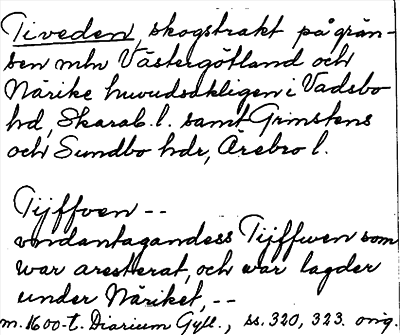 Tiveden, skogstrakt på grän-
sen mln Västergötland och
Närike huvudsakligen i Vadsbo
hd, Skarab. l. samt Grimstens
och Sundbo hdr, Örebro l.
Tijffven --
vordantagandess Tijffwen som
war aresterat, och war lagder
under Näriket, --
m. 1600-t. Diarium Gyll., ss. 320, 323. orig.